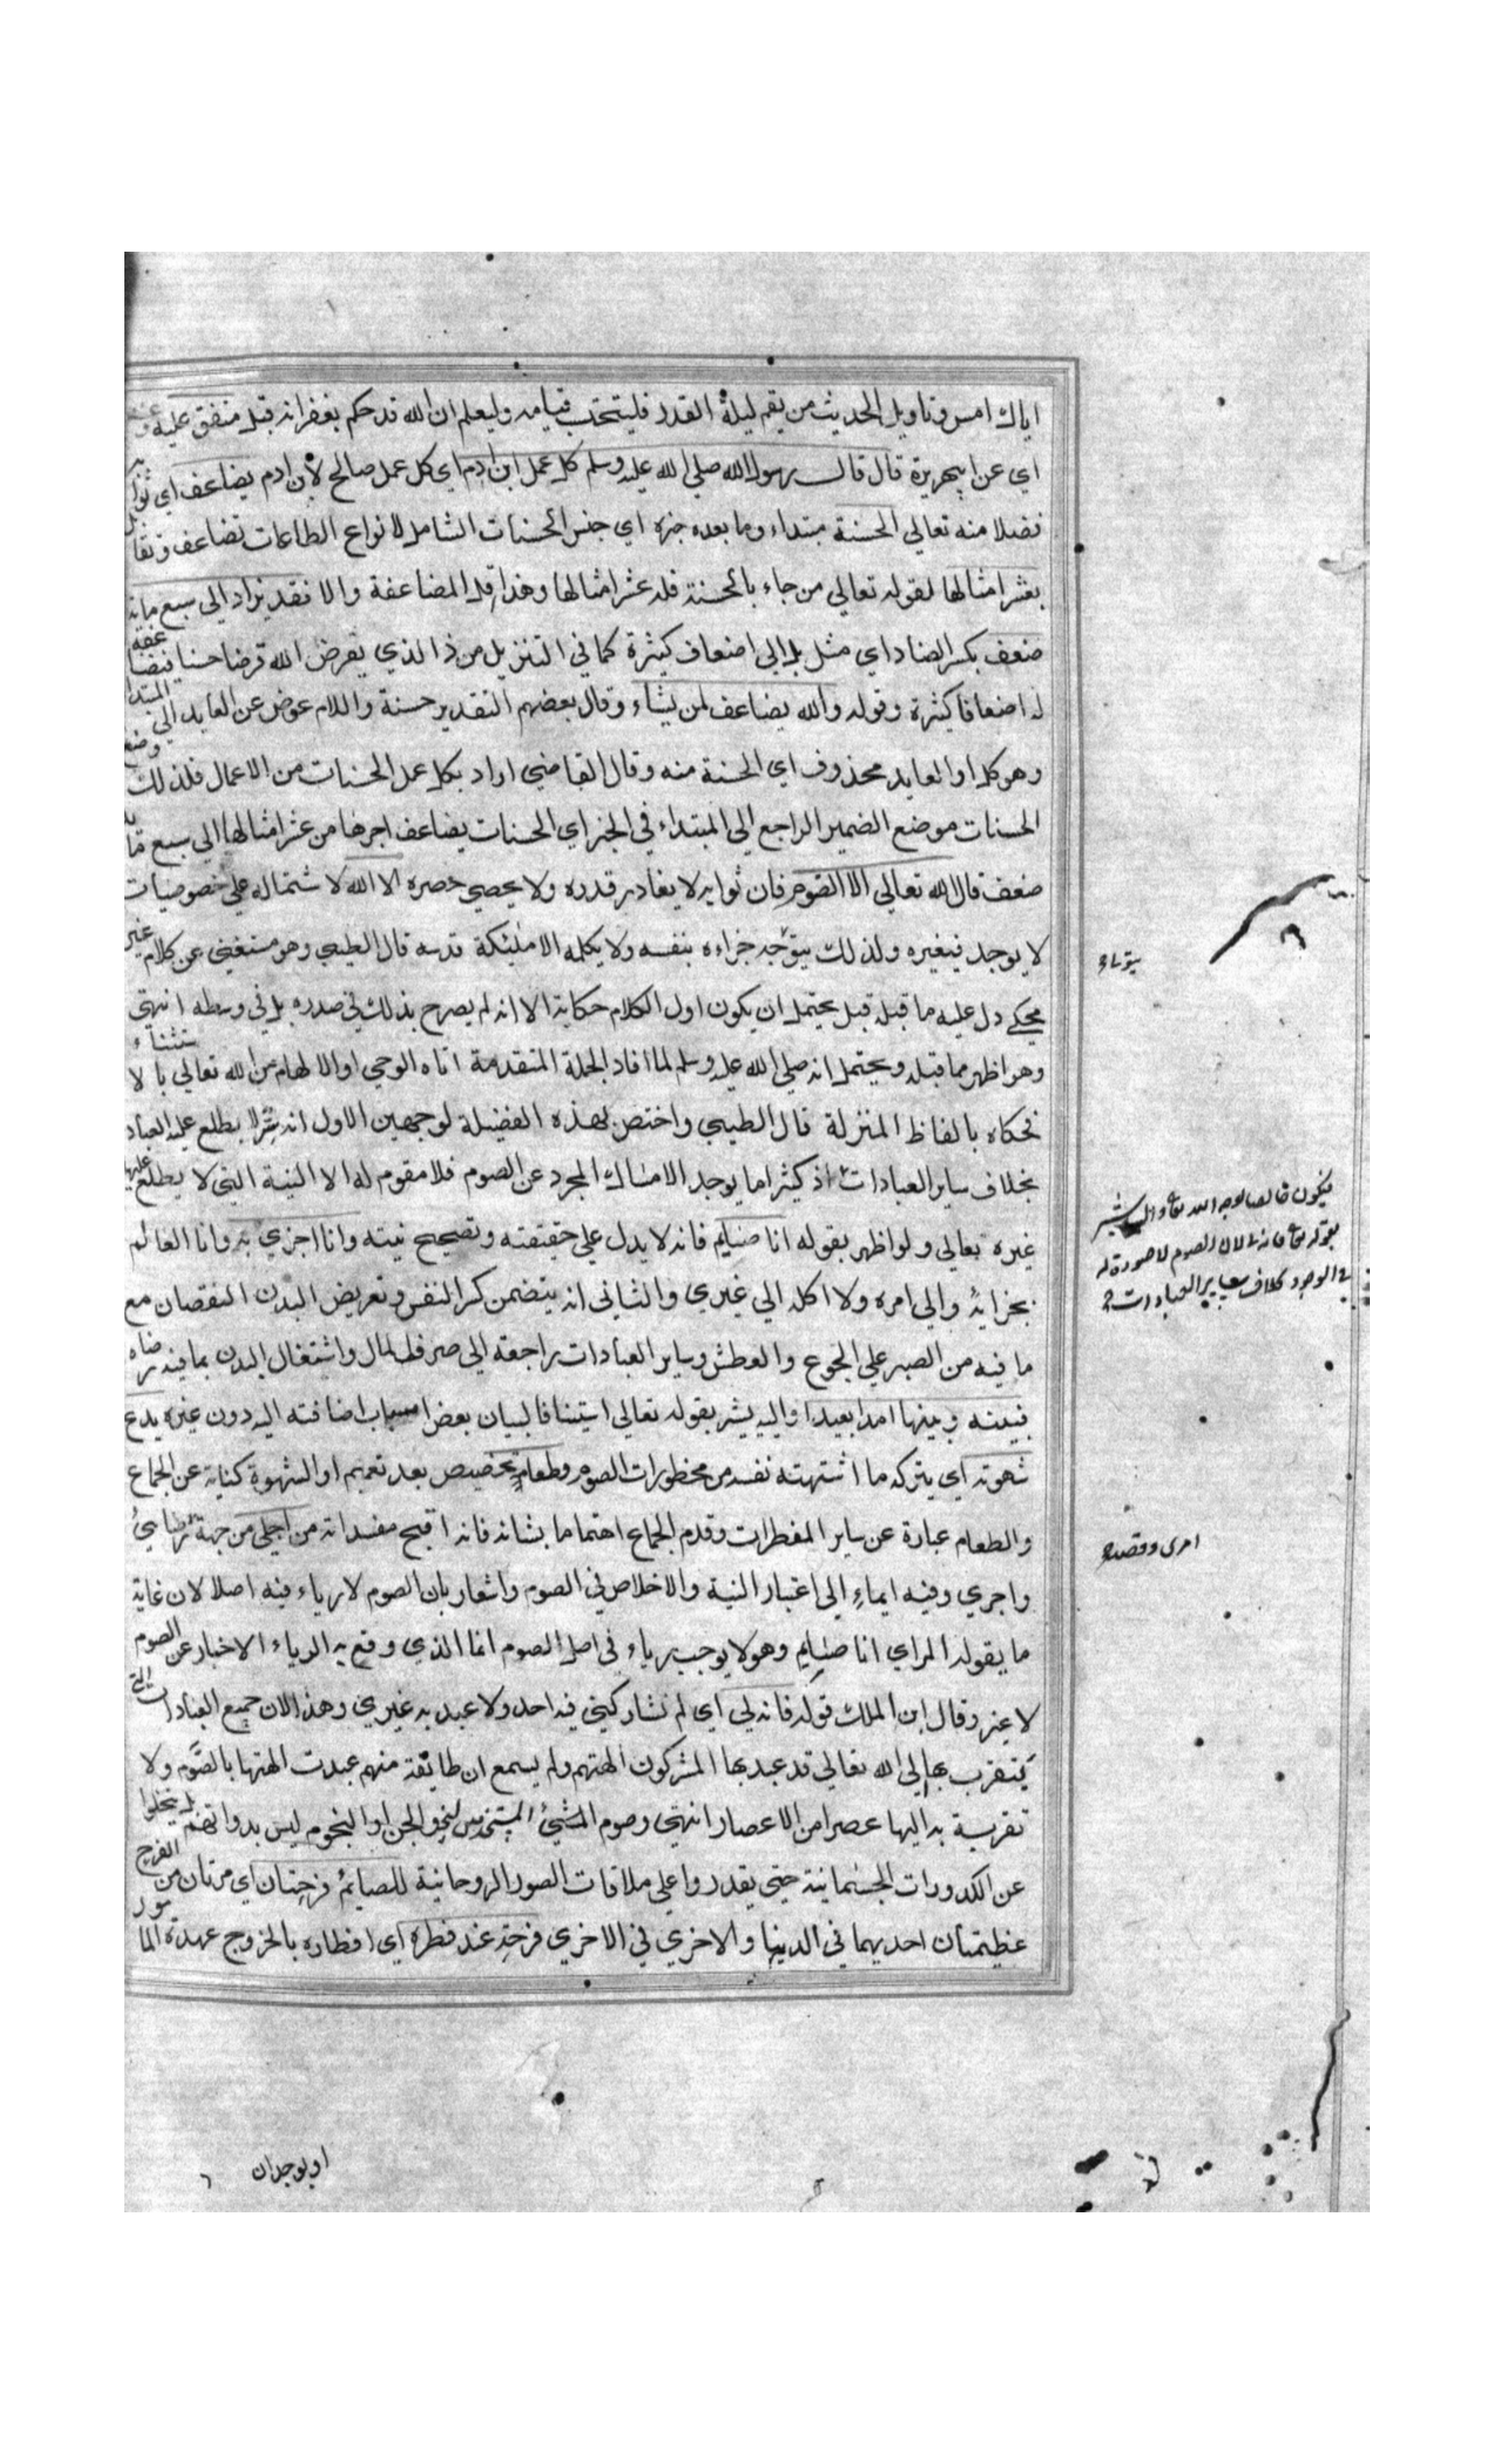 اياك امس وتاويل الحديث من يقم ليلة القدر فليحتسب قيامه وليعلم ان الله قد حكم بغفرانه قبل متفق عليه وعنه
اي عن ابي هريرة قال قال رسول الله صلي الله عليه وسلم كل عمل ابن ادم اي كل عمل صالح لابن ادم يضاعف اي ثوابه
فضلا منه تعالي الحسنة مبتداء وما بعده خبره اي جنس الحسنات الشامل لانواع الطاعات تضاعف وتقابل
بعشر امثالها لقوله تعالي من جاء بالحسنة فله عشر امثالها وهذا اقل المضاعفة والا فقد يزاد الي سبع مائة
ضعف بكسر الضاد اي مثل بل الي اضعاف كثيرة كما في التنزيل من ذا الذي يقرض الله قرضا حسنا فيضاعفه
له اضعافا كثيرة وقوله والله يضاعف لمن يشاء وقال بعضهم التقدير حسنة واللام عوض عن العايد الي المبتدا
وهو كل او العايد محذوف اي الحسنة منه وقال القاضي اراد بكل عمل الحسنات من الاعمال فلذلك وضع
الحسنات موضع الضمير الراجع الي المبتداء في الخبر اي الحسنات يضاعف اجرها من عشر امثالها الي سبع مائة
ضعف قال الله تعالي الا الصوم فان ثوابه لا يقادر قدره ولا يحصي حصره الا الله لاشتماله علي خصوصيات
لا يوجد في غيره ولذلك يتوجه جزاءه بنفسه ولا يكله الا ملئكة قدسه قال الطيبي وهو مستغني عن كلام غير
محكي دل عليه ما قبله قيل يحتمل ان يكون اول الكلام حكاية الا انه لم يصرح بذلك في صدره بل في وسطه انتهي
وهو اظهر مما قبله ويحتمل انه صلي الله عليه وسلم لما افاد الجملة المتقدمة اتاه الوحي او الالهام من الله تعالي بالاستثناء
فحكاه بالفاظ المنزلة قال الطيبي واختص بهذه الفضيلة لوجهين الاول انه سر لا يطلع عليه العباد
بخلاف ساير العبادات اذ كثيرا ما يوجد الامساك المجرد عن الصوم فلا مقوم له الا النية التي لا يطلع عليها
غيره تعالي ولو اظهر بقوله انا صايم فانه لا يدل علي حقيقته وتصحيح نيته وانا اجزي به وانا العالم
بجزائه والي امره ولا اكله الي غيري والثاني انه يتضمن كسر النفس وتعريض البدن النقصان مع
ما فيه من الصبر علي الجوع والعطش وساير العبادات راجعة الي صرف المال واشتغال البدن بما فيه رضاه
فبينه وبينها امدا بعيدا واليه يشير بقوله تعالي استينافا لبيان بعض اسباب اضافته اليه دون غيره يدع
شهوته اي يتركه ما اشتهته نفسه من محظورات الصوم وطعامه تخصيص بعد تعميم او الشهوة كناية عن الجماع
والطعام عبارة عن ساير المفطرات وقدم الجماع اهتماما بشانه فانه اقبح مفسداته من اجلي من جهة رضايئ
واجري وفيه ايماء الي اعتبار النية والاخلاص في الصوم واشعار بان الصوم لا رياء فيه اصلا لان غاية
ما يقوله المراي انا صايم وهو لا يوجب رياء في اصل الصوم انما الذي وقع به الرياء الاخبار عن الصوم
لا غير وقال ابن الملك قوله فانه لي اي لم تشاركني فيه احد ولا عبد به غيري وهذا لان جميع العبادات التي
يتقرب بها الي الله تعالي قد عبد بها المشركون الهتهم ولم يسمع ان طائفة منهم عبدت الهتها بالصوم ولا
تقربت به اليها عصرا من الاعصار انتهي وصوم لنحو الجن او النجوم ليس بدواتهم بل يتخلوا
عن الكدورات الجسمانية حتي يقدروا علي ملاقات الصور الروحانية للصائم فرحتان اي مرتان من الفرح
عظيمتان احديهما في الدنيا والاخري في الاخري فرحة عند فطره اي افطاره بالخروج عهدة المامور
يتولاه
فيكون خالصا لوجه الله تعا واليه يشير
بقوله تعا فانه لي لان الصوم لا صورة له
في الوجود بخلاف ساير العبادات
امري وقصد
او بوجدان